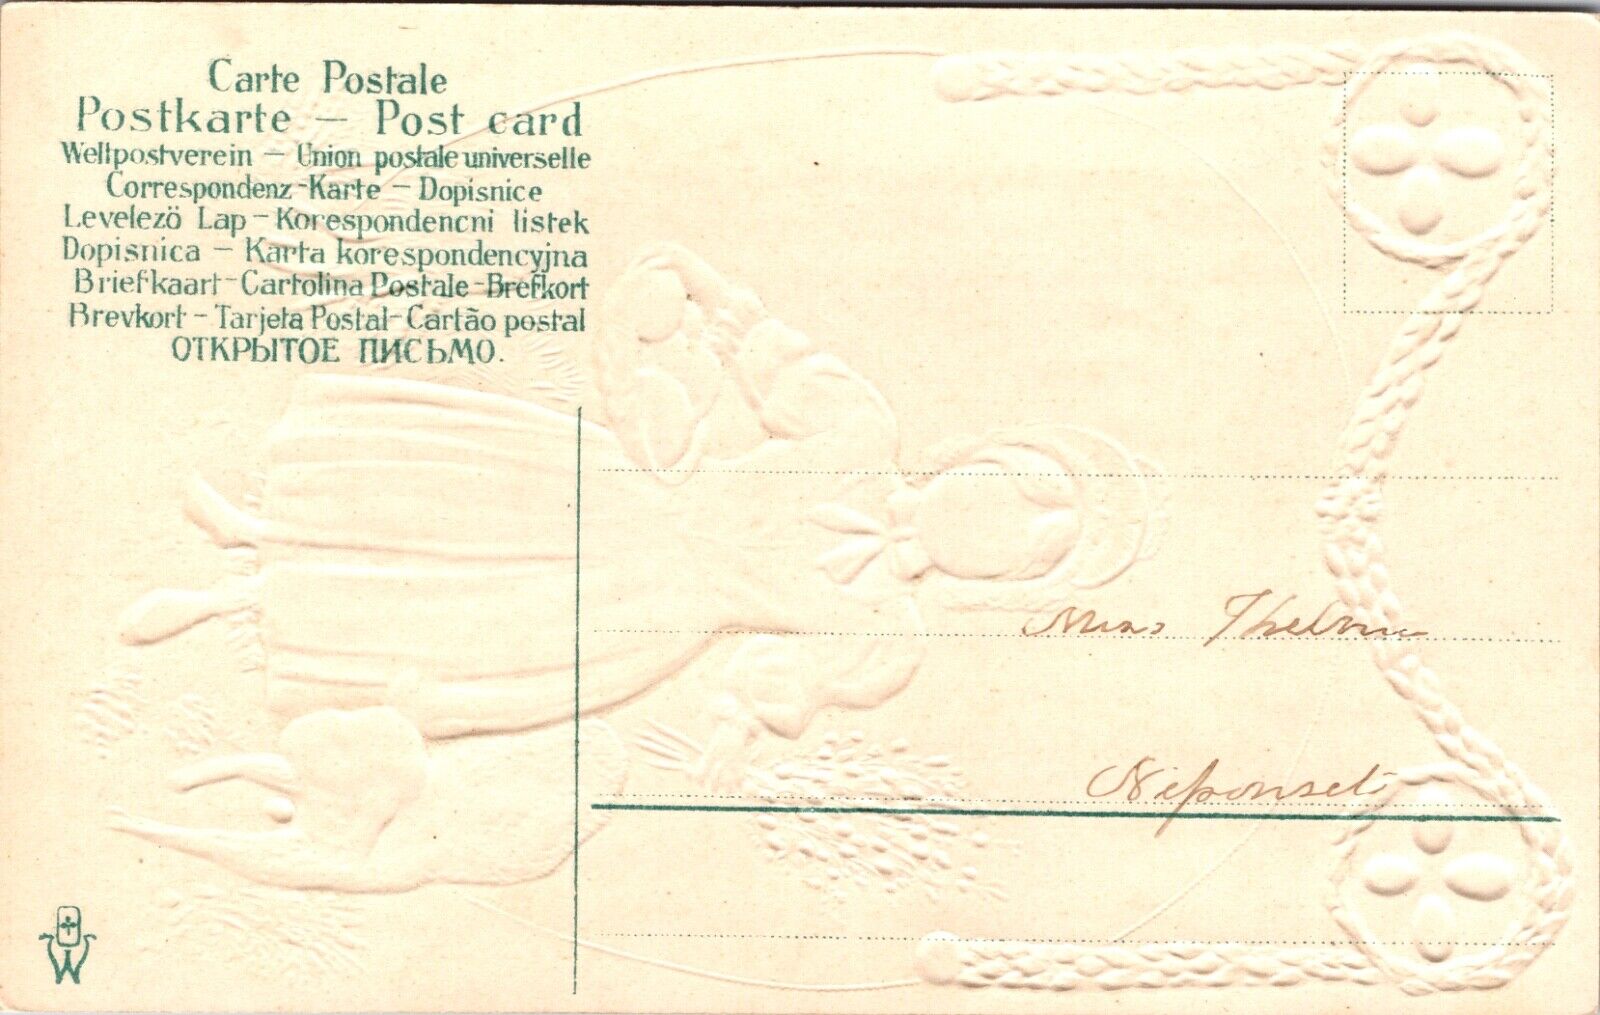 Carte Postale
Postkarte — Post card
Weltpostverein — Union postale universelle
Correspondenz-Karte — Dopisnice
Levelezö Lap — Korespondencni listek
Dopisnica — Karta korespondencyjna
Briefkaart - Cartolina Postale - Brefkort
Brevkort - Tarjeta Postal - Cartão postal
ОТКРЫТОЕ ПИСЬМО.
Miss Thelma
Neponset
W